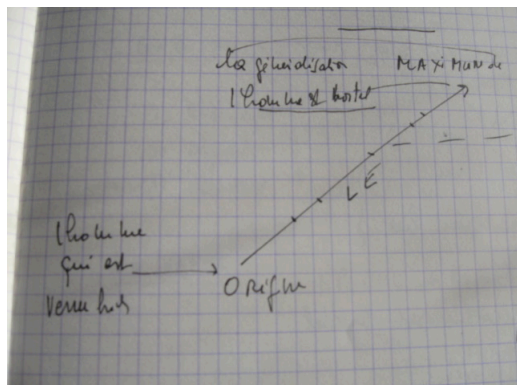 La généralisation MAXIMUM de
l'homme est mortel
LE
l'homme
qui est
venu hier
ORIGINE